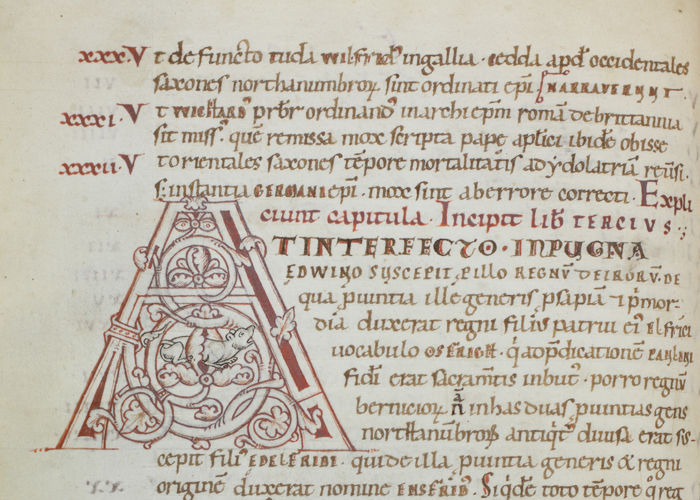 xxx. V t defuncto tuda wilfrid' in gallia · cedda apđ occidentales
saxones northanimbroꝝ sint ordinati ep̄i NARRAVERUNT.
xxxi. V t WICHARD' prb̄r ordinand' in archiep̄m romā de brittannia
sit miss'. quē remissa mox scripta papę ap̄lici ibidē obisse
xxxii. V t orientales saxones tēpore mortalitatis ad ydolatriā reu͛si.
S; instantia GERMANI ep̄i. mox sint ab errore correcti. Expli
ciunt capitula. Incipit lib̄ TERCIVS.
AT INTERFECTO · IN PUGNA
EDWINO SUSCEPIT p̱ ILLO REGNŪ DEIRORŪ. DE
qua ꝓuintia ille generis ꝓsapiā ⁊ pͥmor
dia duxerat regni filiꝰ patrui eiꝰ elfrici
uocabulo OSFRICH. qͥ ad p̄dicationē PAULINI
fidei erat sacram̄tis imbut'. porro regnū
bernicioꝝ ā n̄ in has duas ꝓuintias gens
northanūbroꝝ antiqͥt' diuisa erat sus
cepit filiꝰ EDELFRIDI. qui de illa ꝓuintia generis & regni
originē duxerat nomine ENFRIDꝰ. Siqͥdē toto tēpore qͦ reg